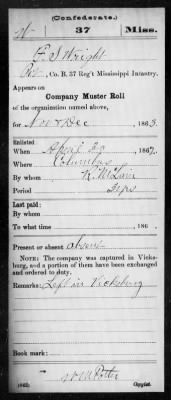 (Confederate.)
W 37 Miss.
F. S. Wright
Pvt, Co. B, 37 Reg't Mississippi Infantry.
Appears on
Company Muster Roll
of the organization named above,
for Nov & Dec, 1863.
Enlisted
When April 20, 1862.
Where Columbus
By whom R. McLain
Period 3 yrs
Last paid:
By whom
To what time , 186 .
Present or absent absent
NOTE: The company was captured in Vicksburg, and a portion of them have been exchanged and ordered to duty.
Remarks: Left in Vicksburg
Book mark:
Porter
Copyist.